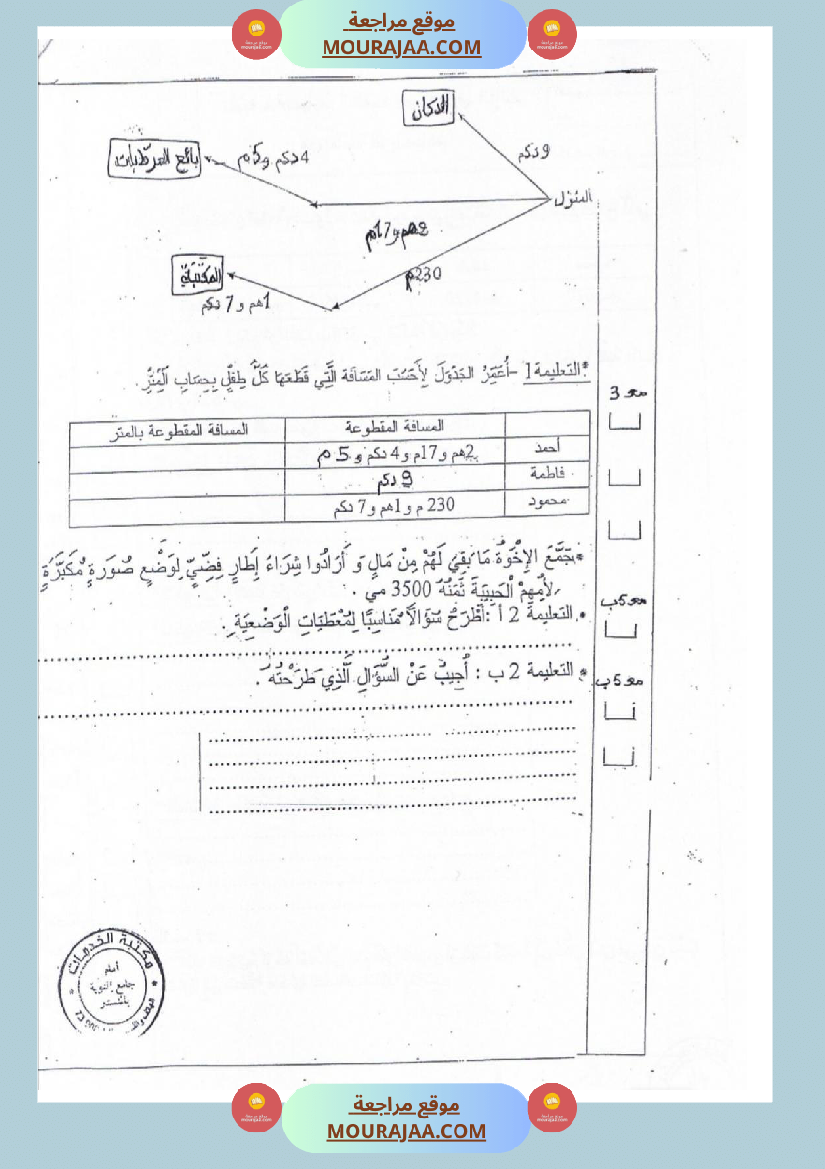 موقع مراجعة
MOURAJAA.COM
الدكان
9 دكم
بائع المرطبات
4 دكم و 5 م
المنزل
2 هم و 17 م
230 م
المكتبة
1 هم و 7 دكم
التعليمة 1 – أُعَمِّرُ الجَدْوَلَ لِأَحْسُبَ المَسَافَة الَّتِي قَطَعَهَا كُلُّ طِفْلٍ بِحِسَابِ الْمِتْرِ.
مع 3
المسافة المقطوعة
المسافة المقطوعة بالمتر
أحمد
2هم و17م و4 دكم و 5 م
فاطمة
9 دكم
محمود
230 م و1هم و7 دكم
جَمَّعَ الإِخْوَةُ مَا بَقِيَ لَهُمْ مِنْ مَالٍ وَ أَرَادُوا شِرَاءَ إِطَارٍ فِضِّيٍّ لِوَضْعِ صُورَةٍ مُكَبَّرَةٍ
لِأُمِهِمْ الْحَبِيبَةَ ثَمَنُهُ 3500 مي .
مع 5ب
التعليمة 2 أ : أَطْرَحُ سُؤَالاً مُنَاسِبًا لِمُعْطَيَاتِ الْوَضْعِيَةِ .
مع 5ب
التعليمة 2 ب : أُجِيبُ عَنْ السُّؤَالِ الَّذِي طَرَحْتُهُ .
مكتبة الخدمات
أمام
جامع التوبة
بالمنستر
موقع مراجعة
MOURAJAA.COM